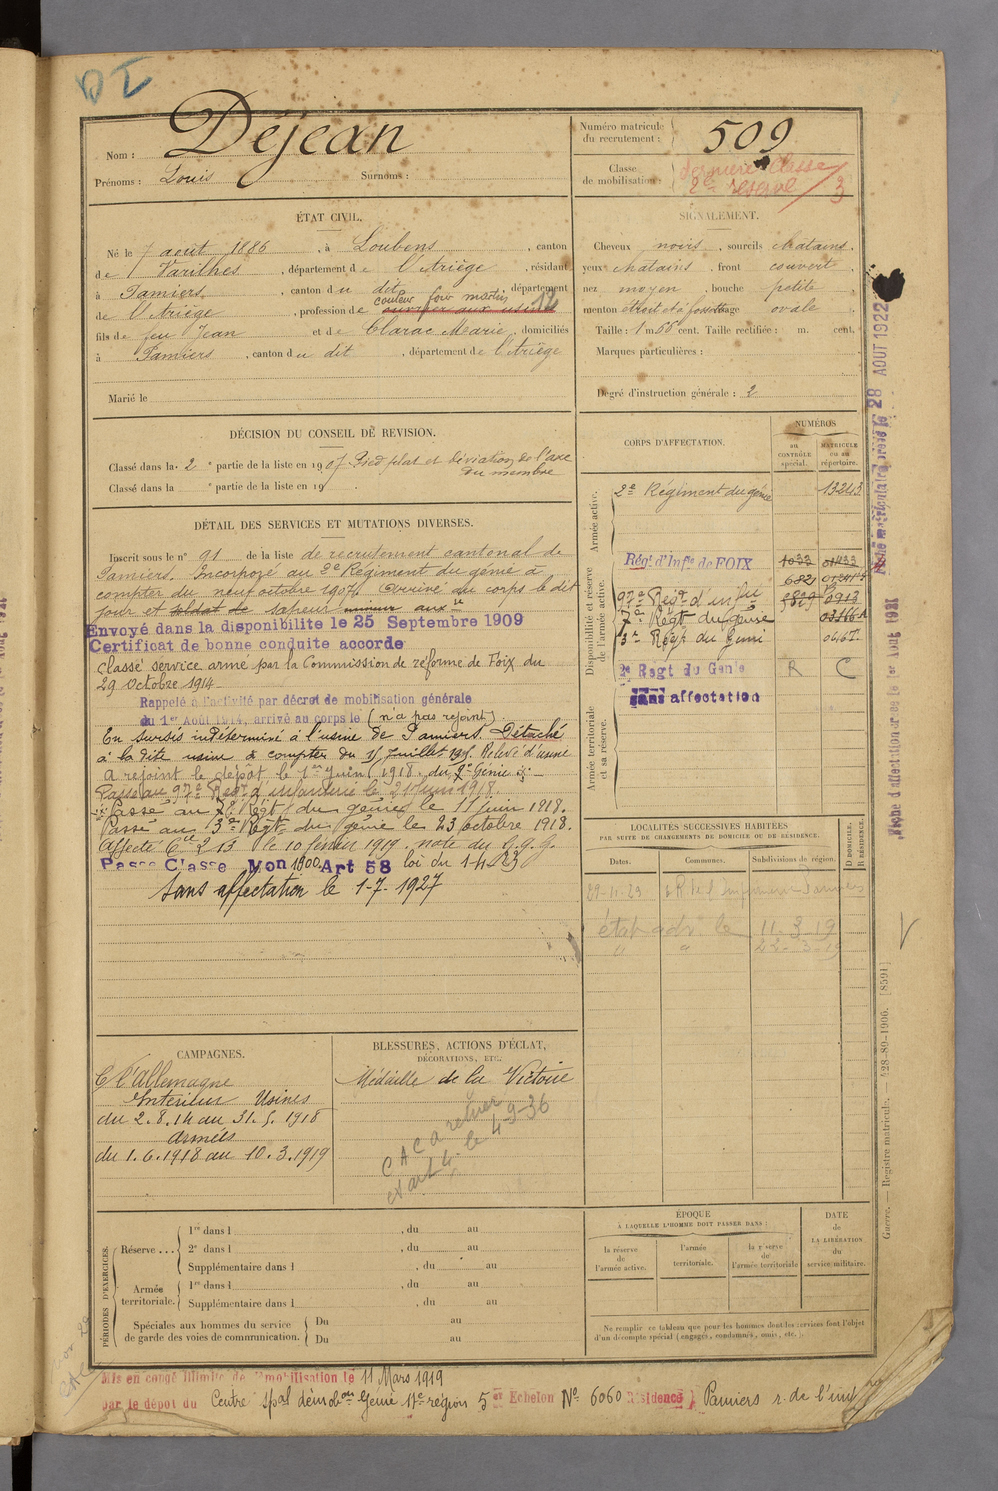 D I
Nom : Déjean
Prénoms : Louis Surnoms :
Numéro matricule du recrutement : 509
Classe de mobilisation : dernière Classe 2e réserve / 3
ÉTAT CIVIL.
Né le 7 août 1886, à Loubens, canton
de Varilhes, département de l'Ariège, résidant
à Pamiers, canton du dit, département
couleur four martin 12
de l'Ariège, profession de ouvrier aux usines
fils de feu Jean et de Clarac Marie, domiciliés
à Pamiers, canton du dit, département de l'Ariège
Marié le
SIGNALEMENT.
Cheveux noirs, sourcils chatains.
yeux chatains, front couvert,
nez moyen, bouche petite,
menton étroit et à fossette visage ovale
Taille : 1 m 66 cent. Taille rectifiée : m. cent.
Marques particulières :
Degré d'instruction générale : 2
DÉCISION DU CONSEIL DE REVISION.
Classé dans la 2e partie de la liste en 1907. Pied plat et déviation de l'axe
du membre
Classé dans la e partie de la liste en 19
DÉTAIL DES SERVICES ET MUTATIONS DIVERSES.
Inscrit sous le n° 91 de la liste de recrutement cantonal de
Pamiers. Incorporé au 2e Régiment du génie à
compter du neuf octobre 1907. Arrivé au corps le dit
jour et soldat de sapeur mineur aux
Envoyé dans la disponibilité le 25 Septembre 1909
Certificat de bonne conduite accordé
Classé service armé par la Commission de réforme de Foix du
29 octobre 1914
Rappelé à l'activité par décret de mobilisation générale
du 1er Août 1914, arrivé au corps le (n'a pas rejoint).
En sursis indéterminé à l'usine de Pamiers. Détaché
à la dite usine à compter du 15 Juillet 1915. Relevé d'usine
a rejoint le dépôt le 1er Juin 1918, du 2e Génie
Passé au 97e Regt d'infanterie le 2 Juin 1918.
Passé au 7e Régt du génie le 11 juin 1918.
Passé au 3e Régt du génie le 23 octobre 1918.
Affecté Cie 2 13 le 10 février 1919 note du G.Q.G.
Passe Classe Mon 1900 Art 58 loi du 1-4-23
Sans affectation le 1-7-1927
CORPS D'AFFECTATION.
NUMÉROS
au CONTRÔLE spécial.
MATRICULE ou au répertoire.
Armée active.
2e Régiment du génie 13243
Disponibilité et réserve de l'armée active.
Régt d'Infie de FOIX 1033 01433
682
97e Regt d'infie 0913
7e Régt du génie 03166
3e Régt du Génie
Armée territoriale et sa réserve.
2e Regt du Génie R C
sans affectation
LOCALITÉS SUCCESSIVES HABITÉES
PAR SUITE DE CHANGEMENTS DE DOMICILE OU DE RÉSIDENCE.
Dates. Communes. Subdivisions de région. D DOMICILE. R RÉSIDENCE.
29-11-29 Pamiers
établ adr. le 11-3-19
" " 22-3-19
CAMPAGNES.
C l'Allemagne
Intérieur Usines
du 2.8.14 au 31.5.1918
Armées
du 1.6.1918 au 10.3.1919
BLESSURES, ACTIONS D'ÉCLAT,
DÉCORATIONS, ETC.
Médaille de la Victoire
C A C A retirer
le 4-9-36
PÉRIODES D'EXERCICES.
Réserve ...
1re dans l , du au
2e dans l , du au
Supplémentaire dans l , du au
Armée territoriale.
1re dans l , du au
Supplémentaire dans l , du au
Spéciales aux hommes du service de garde des voies de communication.
Du au
Du au
ÉPOQUE
À LAQUELLE L'HOMME DOIT PASSER DANS :
la réserve de l'armée active.
l'armée territoriale.
la réserve de l'armée territoriale
DATE de LA LIBÉRATION du service militaire.
Ne remplir ce tableau que pour les hommes dont les services font l'objet
d'un décompte spécial (engagés, condamnés, omis, etc.).
Mis en congé illimité de démobilisation le 11 Mars 1919
par le dépôt du Centre spal démobon Génie 17e région 5er Echelon No 6060 Résidence) Pamiers r. de l'
Guerre. — Registre matricule. 428-89-1906. [8591]
28 AOUT 1922
Fiche d'affectation créée le 1er Août 1921